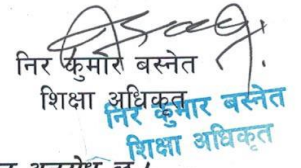 निर कुमार बस्नेत
शिक्षा अधिकृत
निर कुमार बस्नेत
शिक्षा अधिकृत